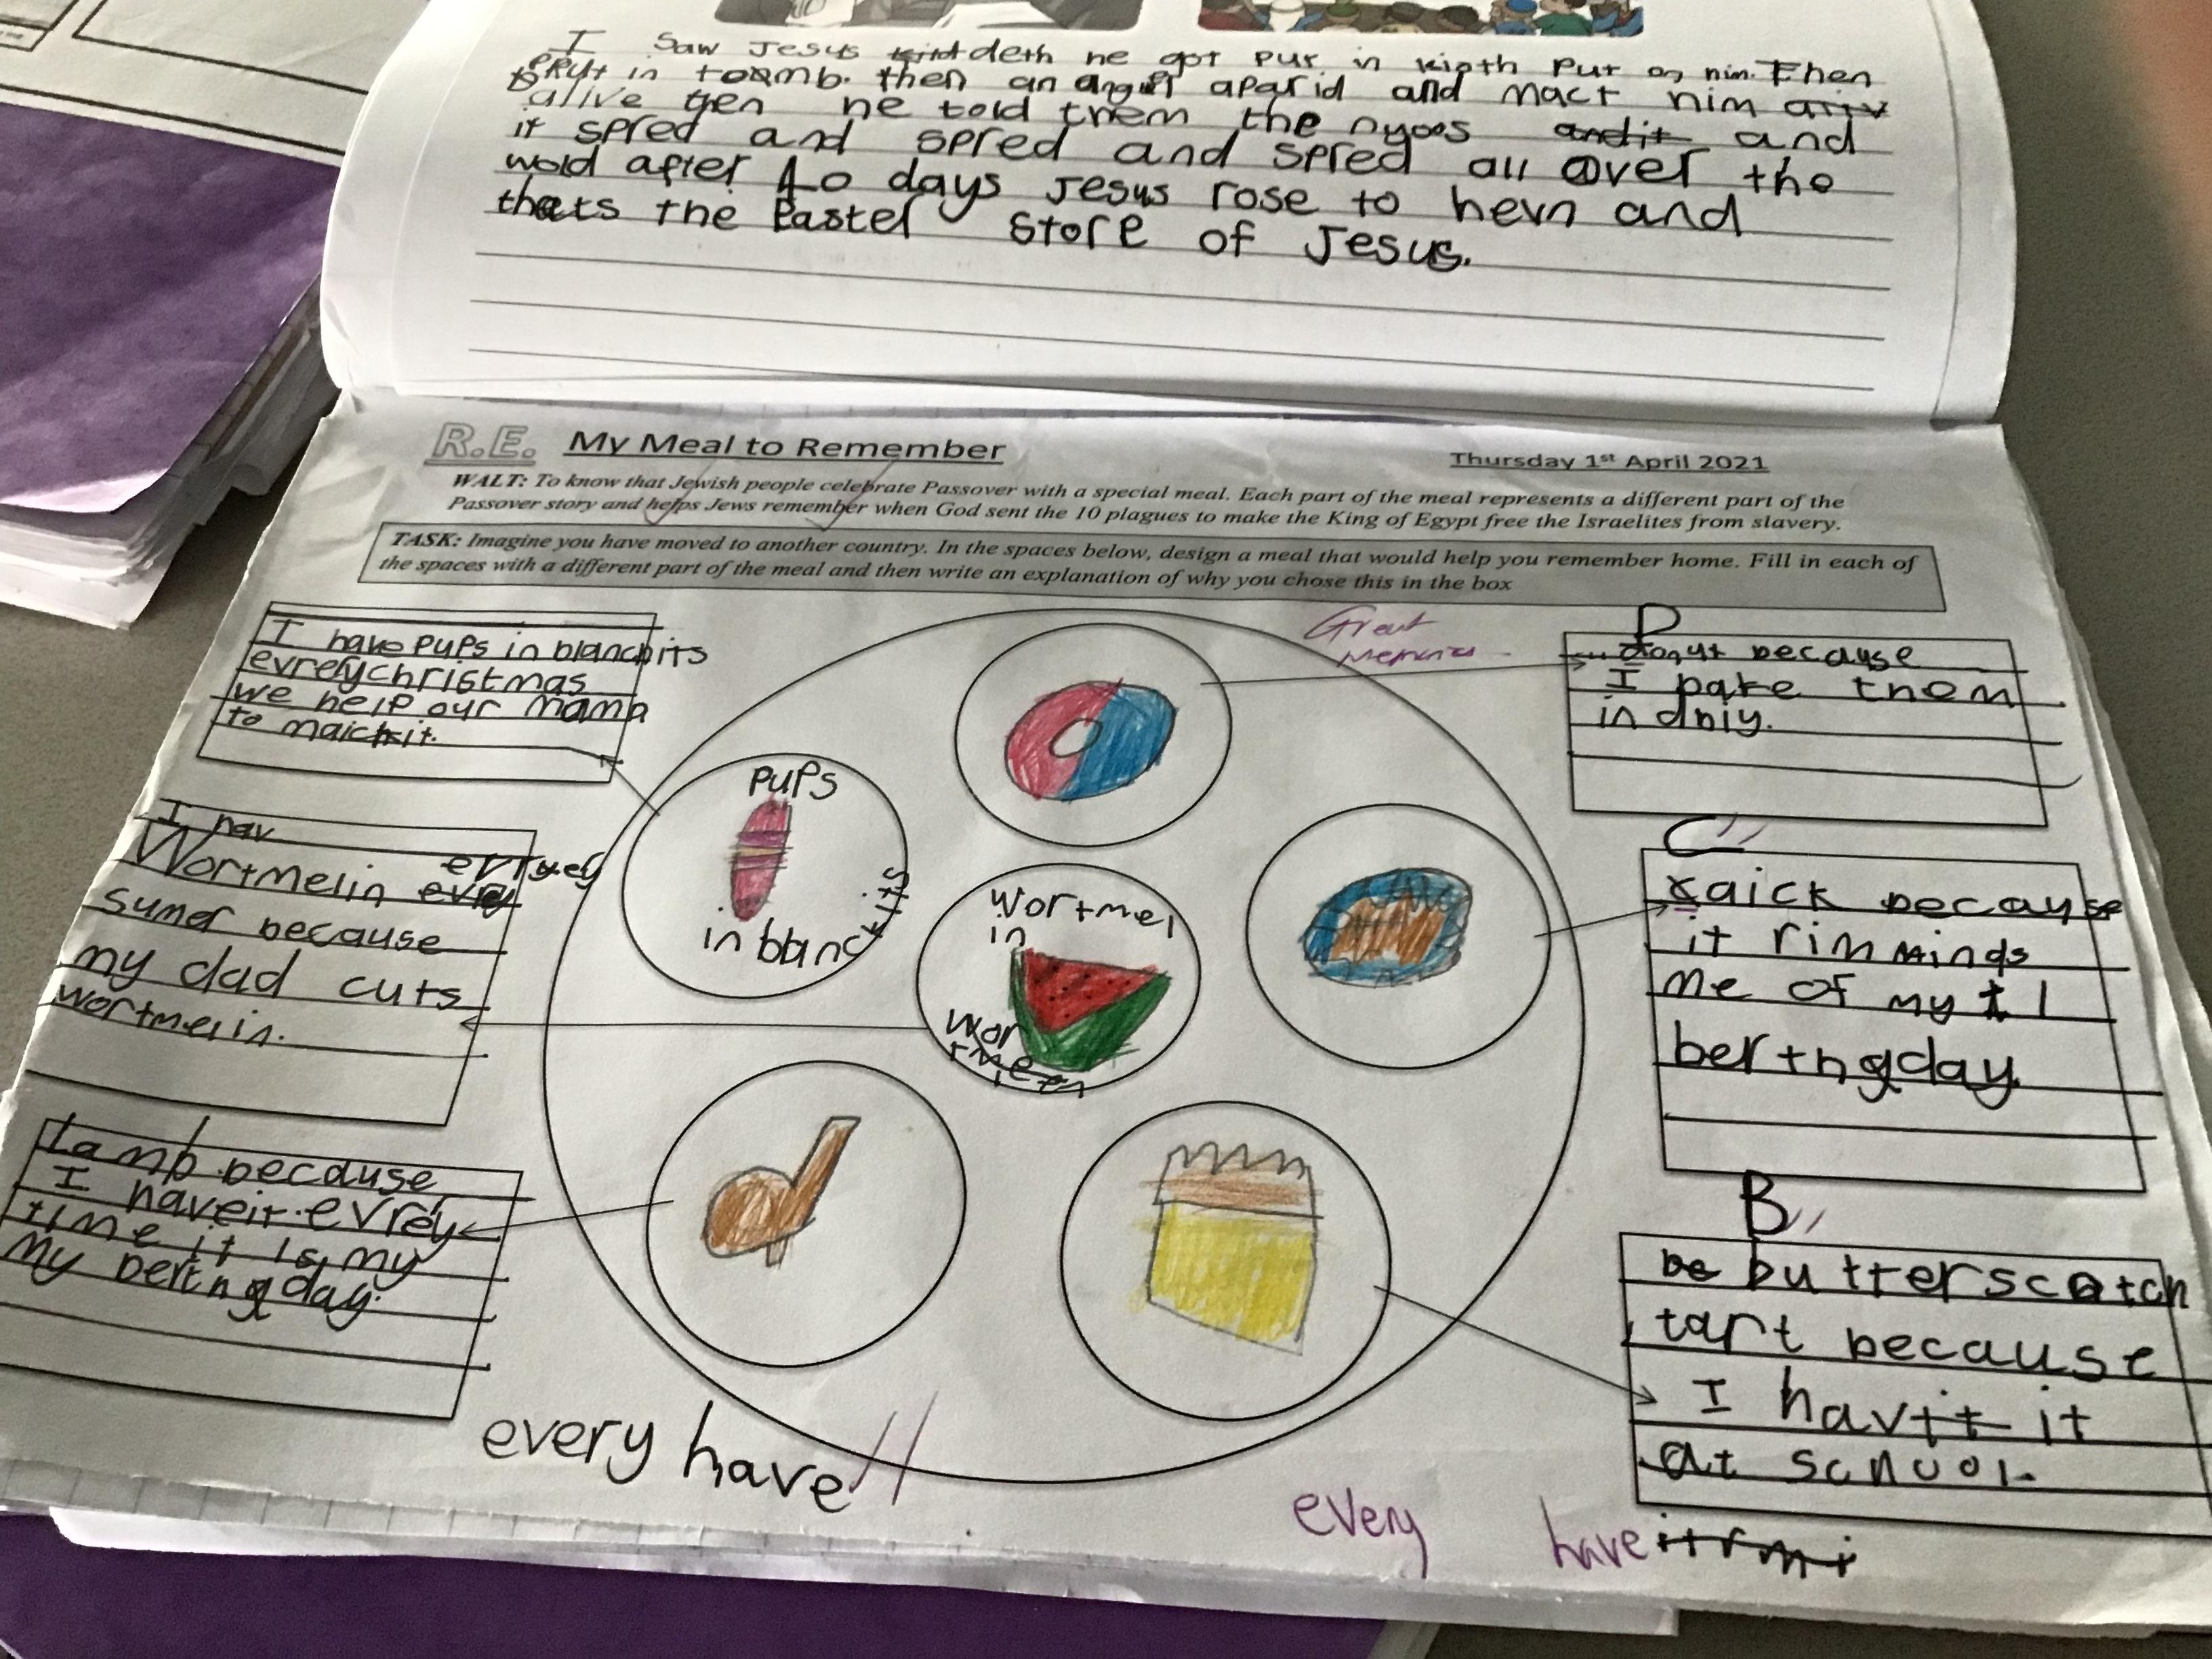 I saw Jesus deth he got put in kloth put on him. Then
put in toamb. then an angel aparid and mact him
alive then he told them the nyoos and it and
it spred and spred and spred all over the
wold after 40 days Jesus rose to hevn and
thats the Easter Store of Jesus.
R.E. My Meal to Remember
Thursday 1st April 2021
WALT: To know that Jewish people celebrate Passover with a special meal. Each part of the meal represents a different part of the
Passover story and helps Jews remember when God sent the 10 plagues to make the King of Egypt free the Israelites from slavery.
TASK: Imagine you have moved to another country. In the spaces below, design a meal that would help you remember home. Fill in each of
the spaces with a different part of the meal and then write an explanation of why you chose this in the box
I have pups in blanckits
evrey christmas
we help our mama
to maick it.
I hav
Wortmelin evrey evrey
sumer because
my dad cuts
wortmelin.
Lamb because
I have it evrey
time it is my
My berthgday.
pups
in blanckits
wortmel
in
wor
Great
Memories
D
donut because
I
them
in
C
caick because
it rimminds
me of my
berthgday.
B
be butterscotch
tart because
I hav it it
at school.
every have
every have